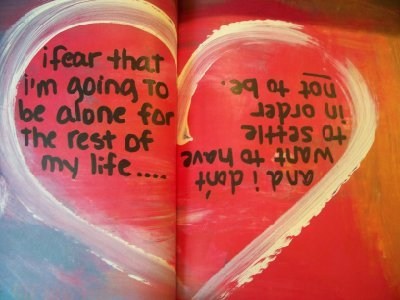 i fear that
i'm going to
be alone for
the rest of
my life....
and i don't
want to have
to settle
in order
not to be.